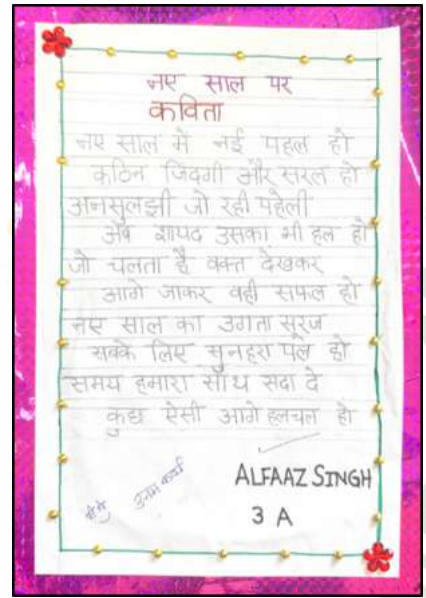 नए साल पर
कविता
नए साल में नई पहल हो
कठिन जिंदगी और सरल हो
अनसुलझी जो रही पहेली
अब शायद उसका भी हल हो
जो चलता है वक्त देखकर
आगे जाकर वही सफल हो
नए साल का उगता सूरज
सबके लिए सुनहरा पल हो
समय हमारा साथ सदा दे
कुछ ऐसी आगे हलचल हो
ALFAAZ SINGH
3 A
उत्तम कार्य